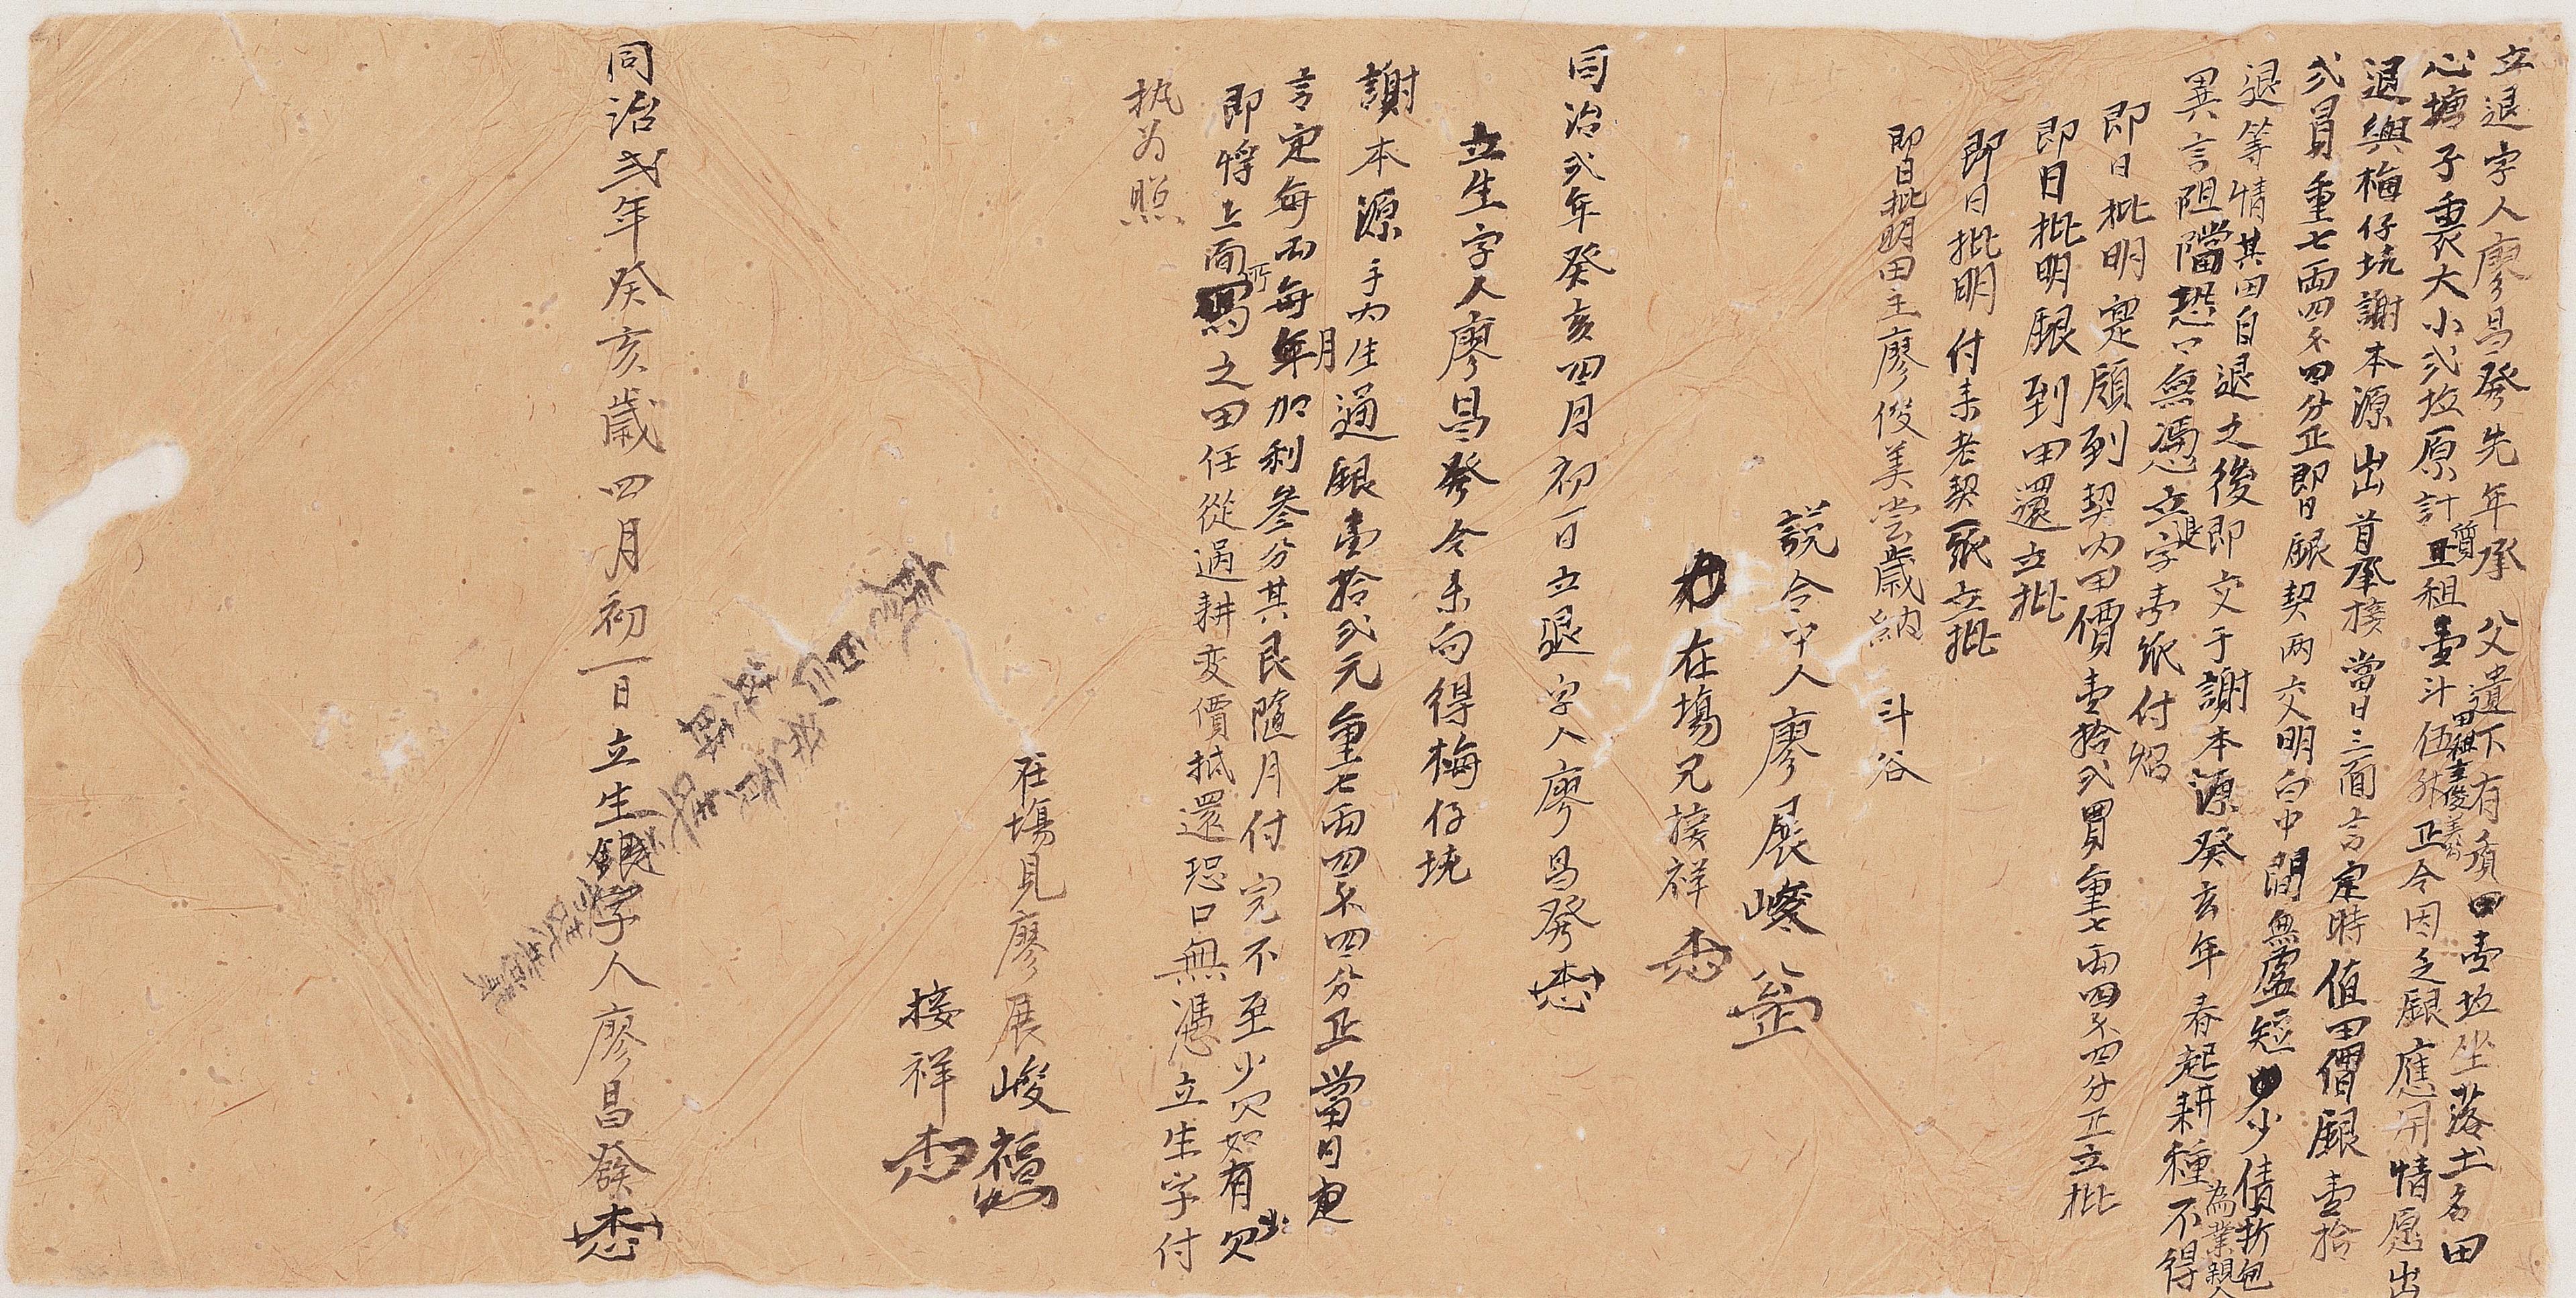 立退字人廖昌發先年承 父遺下有質田租主俊美公項田壹坵坐落土名田
心塘子裏大小弍坵原計租壹斗伍升正今因乏銀應用情愿出
退與梅仔坑謝本源出首承接當日三面言定時值田價銀壹拾
弍員重七兩四錢四分正即日銀契兩交明白中間無虛短少債折包
退等情其田自退之後即交于謝本源癸亥年春起耕種為業親人不得
異言阻擋恐口無憑立退字壹紙付照
即日批明寔領到契內田價壹拾弍買重七兩四錢四分正立批
即日批明銀到田還立批
即日批明付來老契一張立批
即日批明田主廖俊美嘗歲納 斗谷
說合中人廖展峻
在塲兄接祥
同治弍年癸亥四月初一日立退字人廖昌發
立生字人廖昌發今來向得梅仔坑
謝本源手內生通銀壹拾弍元重七兩四錢四分正當日面
言定每兩每月加利叁分其艮隨月付完不至少欠如有少欠
即將上面所寫之田任從過耕变價抵還恐口無憑立生字付
执为照
在塲見廖展峻
接祥
同治弍年癸亥歲四月初一日立生銀字人廖昌發